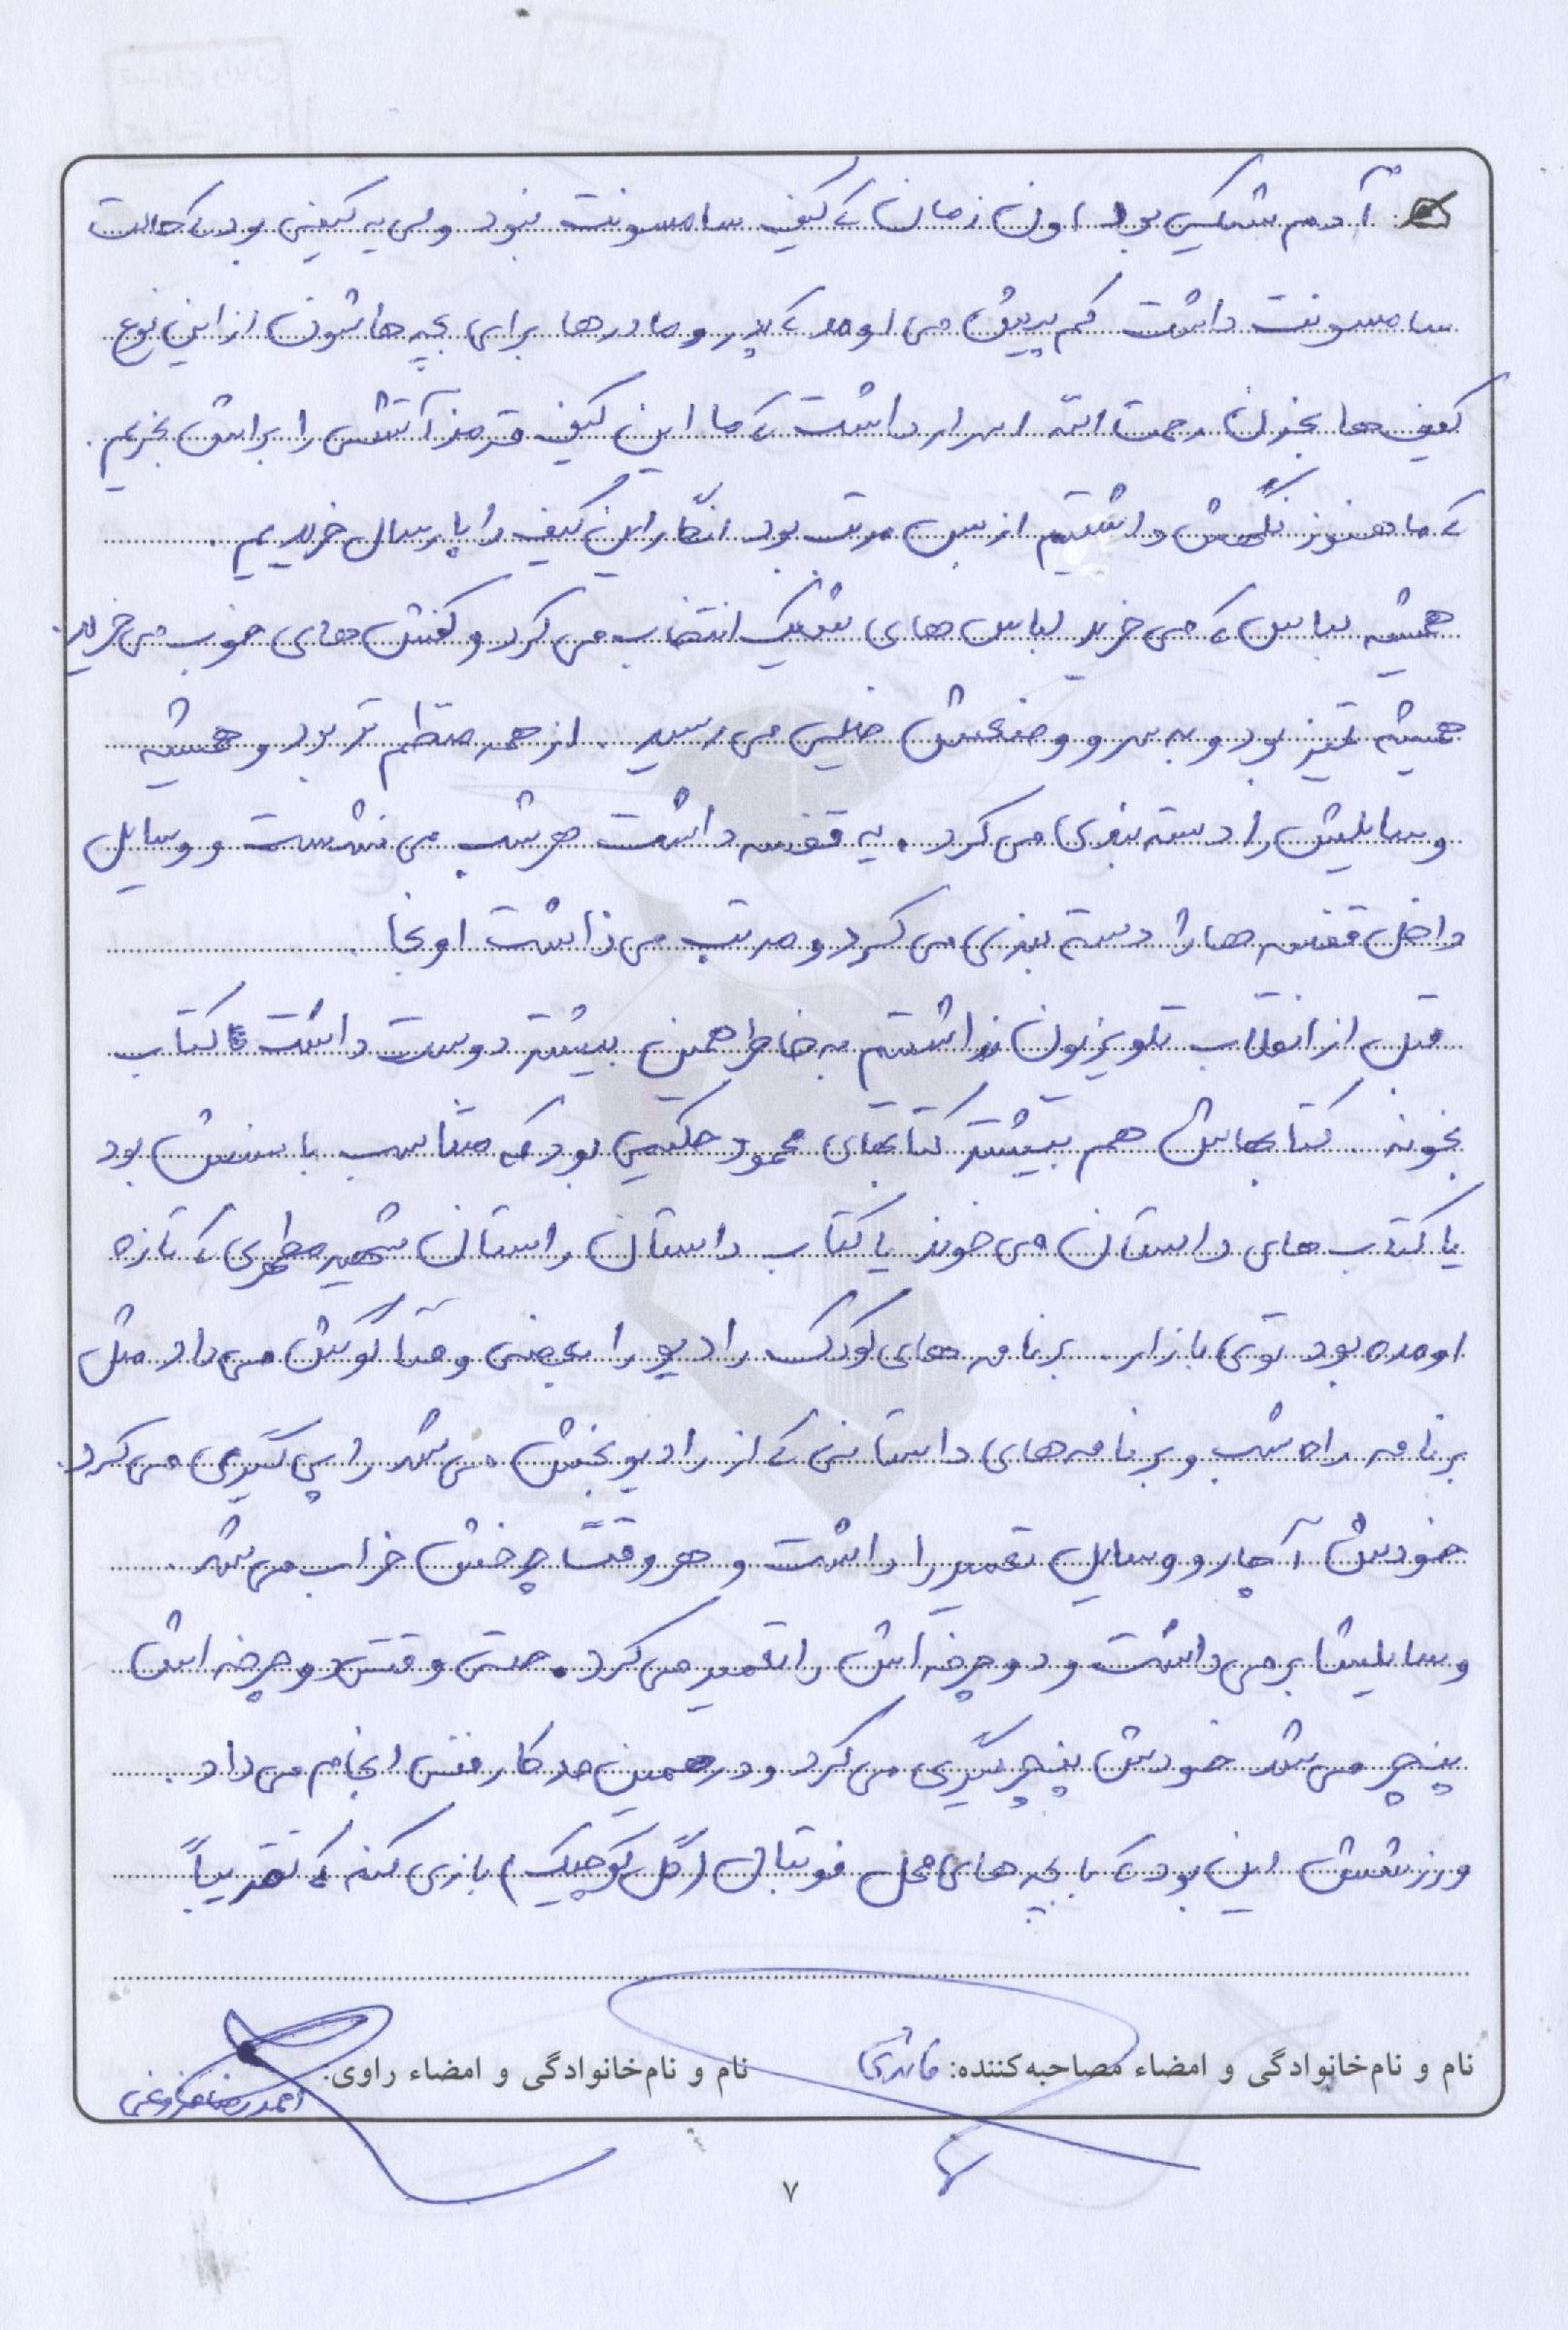 آدم شیکی بود اون زمان که کیف سامسونت نبود ولی یه کیفی بود که حالت
سامسونت داشت کم پیش می اومد که پدر و مادرها برای بچه هاشون از این نوع
کیف ها بخرن رحمت الله اسرار داشت که ما این کیف قرمز آتشی را براش بخریم.
که ما هنوز نگهش داشتیم از بس مرتب بود انگار این کیف را پارسال خریدیم.
همیشه لباس که می خرید لباس های شیک انتخاب می کرد و کفش های خوب می خرید.
همیشه تمیز بود و به سر و وضعش خیلی می رسید. از همه منظم تر بود و همیشه
وسایلش را دسته بندی می کرد. یه قفسه داشت هر شب می نشست و وسایل
داخل قفسه ها را دسته بندی می کرد و مرتب می ذاشت اونجا.
قبل از انقلاب تلویزیون نداشتیم به خاطر همین بیشتر دوست داشت کتاب
بخونه. کتابهایش هم بیشتر کتابهای محمود حکیمی بود که متناسب با سنش بود
یا کتاب های داستان می خوند یا کتاب داستان راستان شهید مطهری که تازه
اومده بود توی بازار. برنامه های کودک رادیو را بعضی وقتا گوش می داد مثل
برنامه راه شب و برنامه های داستانی که از رادیو پخش می شد را پی گیری می کرد.
خودش آچار و وسایل تعمیر را داشت و هر وقت چرخش خراب می شد.
وسایلشا برمی داشت و دوچرخه اش را تعمیر می کرد. حتی وقتی دوچرخه اش
پنچر می شد خودش پنچرگیری می کرد و در همین حد کار فنی انجام می داد.
ورزشش این بود که با بچه های محل فوتبال (گل کوچیک) بازی کنه که تقریباً
نام و نام‌خانوادگی و امضاء مصاحبه‌کننده:
نام و نام‌خانوادگی و امضاء راوی: احمدرضا فروغی
۷